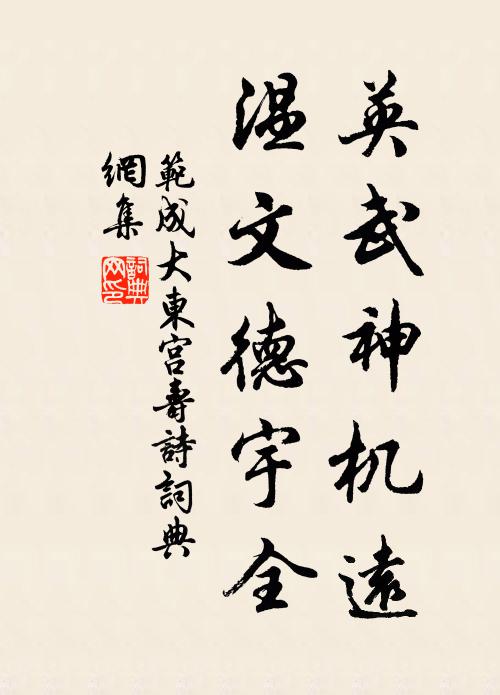 英武神机遠
温文德宇全
範成大東宮壽詩詞典
網集
詞典網印